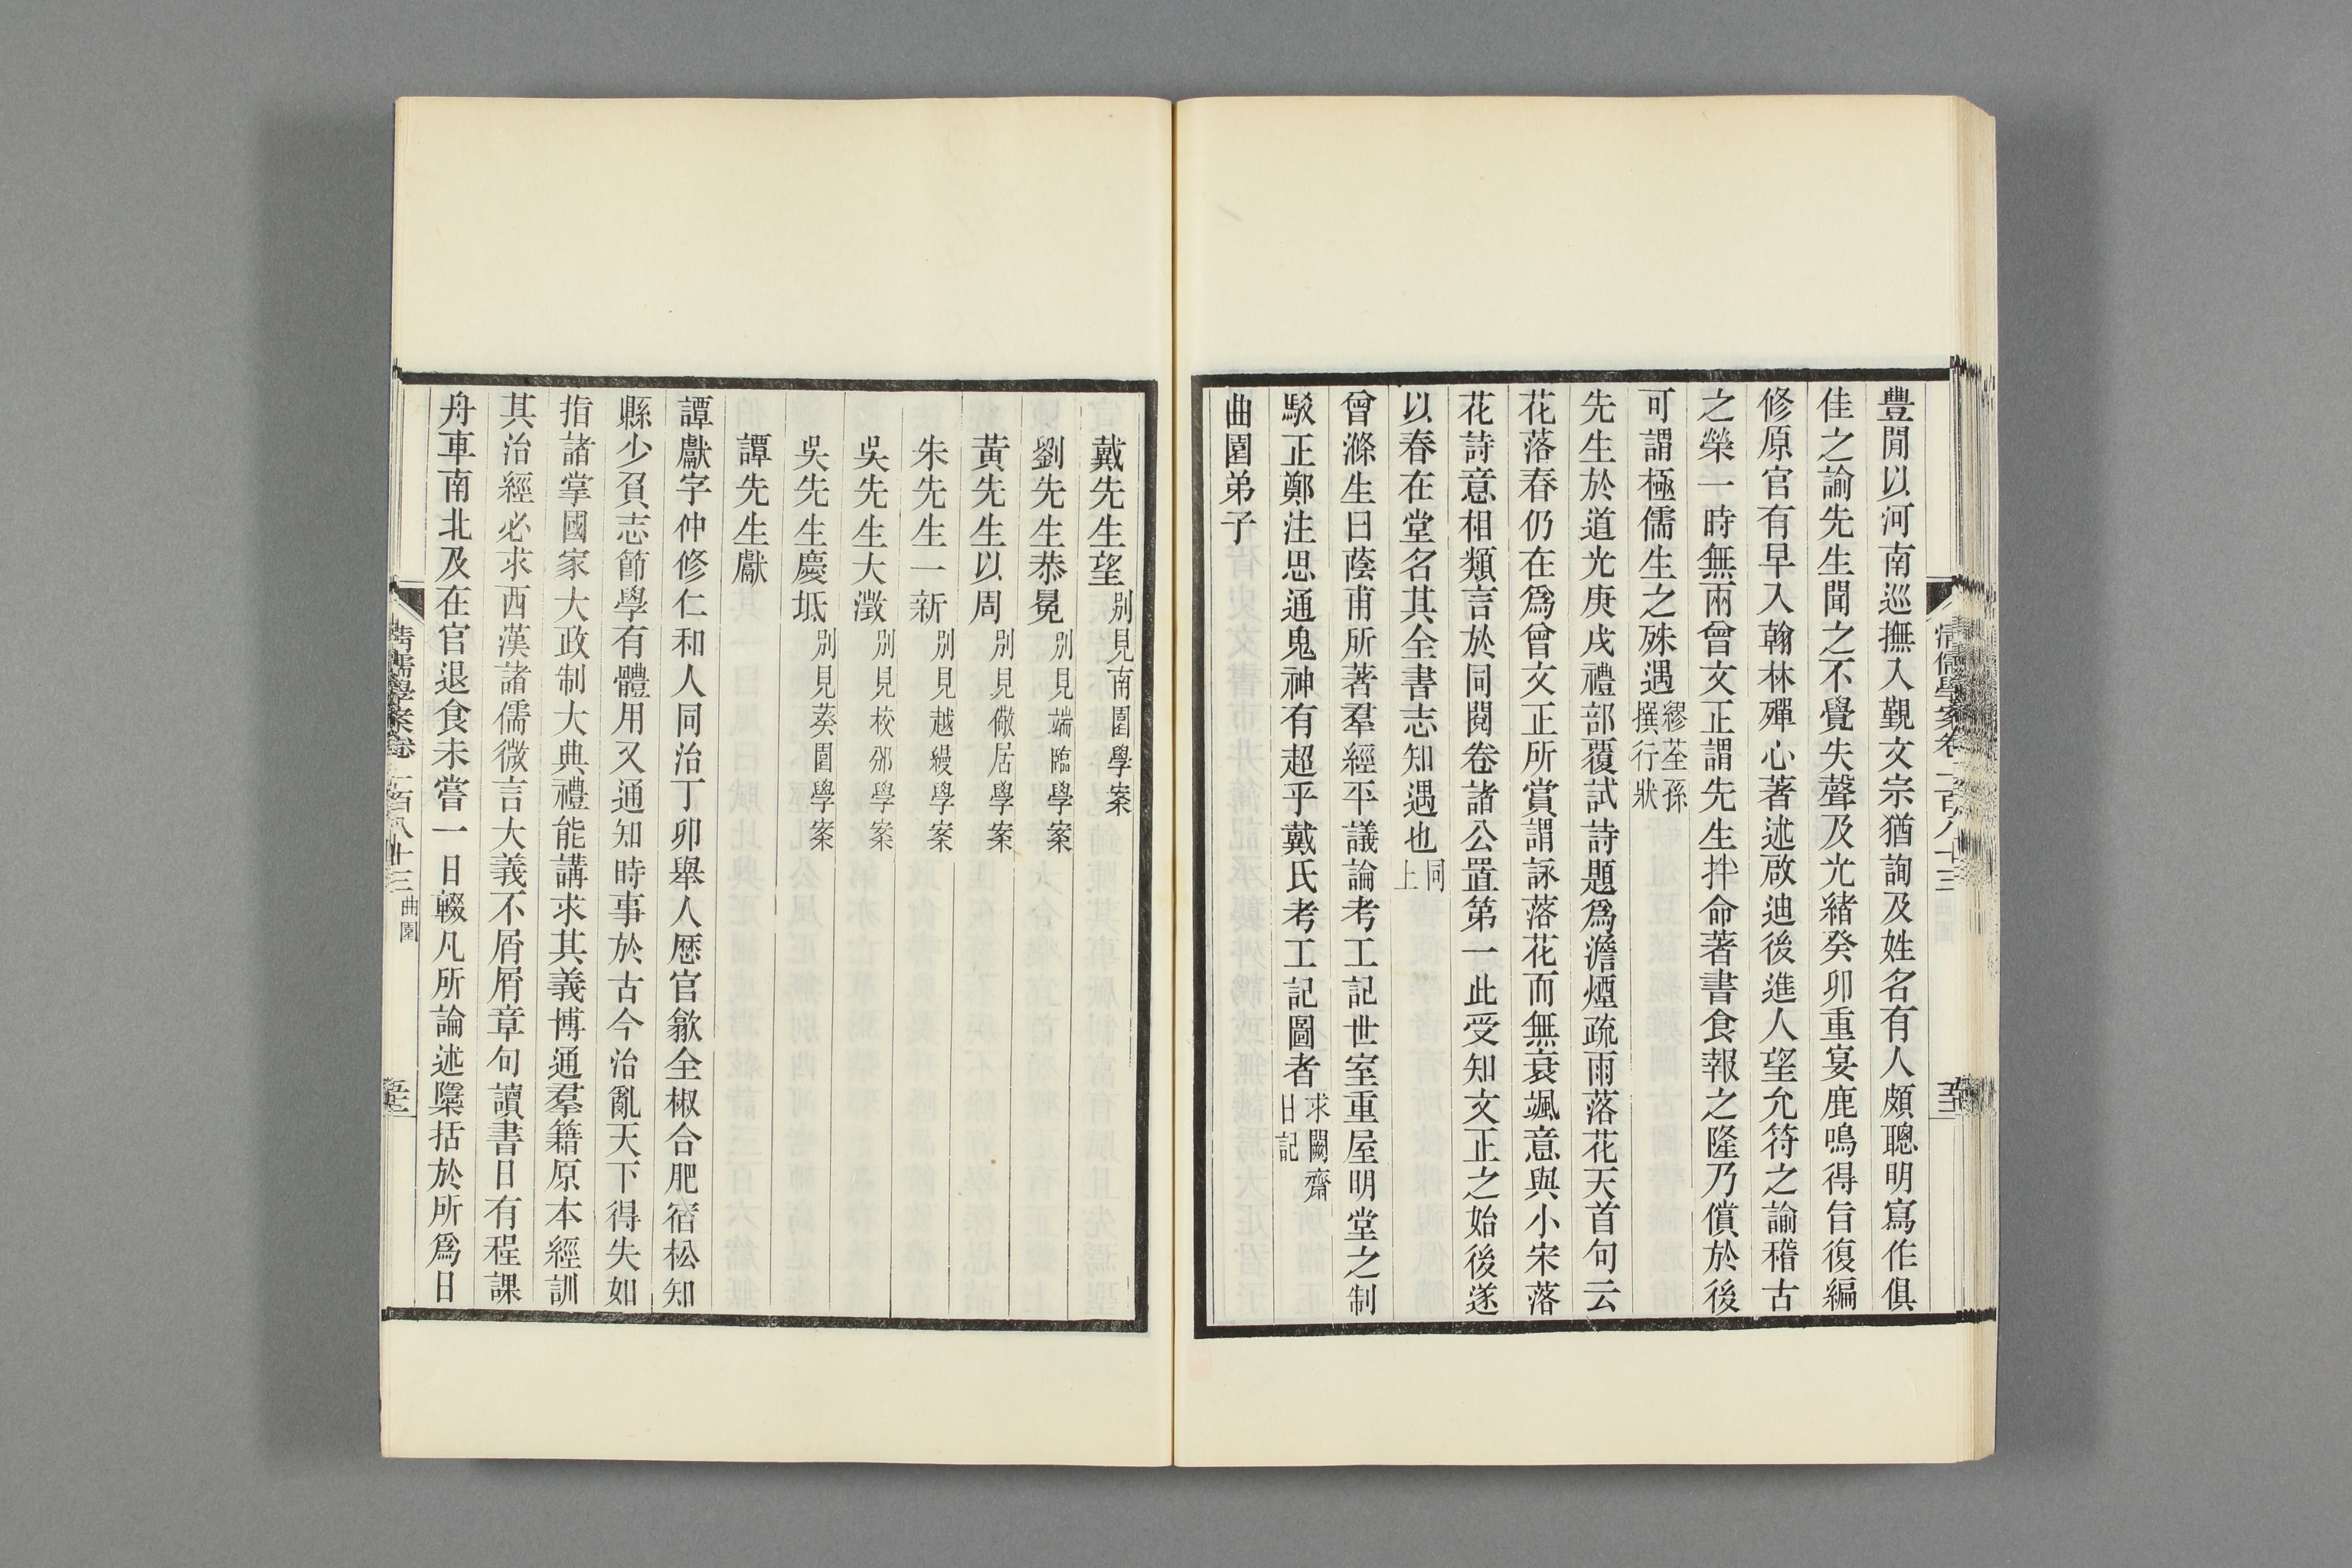 豐閒以河南巡撫入覲文宗猶詢及姓名有人頗聰明寫作俱
佳之諭先生聞之不覺失聲及光緒癸卯重宴鹿鳴得旨復編
修原官有早入翰林殫心著述啟迪後進人望允符之諭稽古
之榮一時無兩曾文正謂先生拌命著書食報之隆乃償於後
可謂極儒生之殊遇繆荃孫撰行狀
先生於道光庚戌禮部覆試詩題爲澹煙疏雨落花天首句云
花落春仍在爲曾文正所賞謂詠落花而無衰颯意與小宋落
花詩意相類言於同閱卷諸公置第一此受知文正之始後遂
以春在堂名其全書志知遇也同上
曾滌生曰蔭甫所著羣經平議論考工記世室重屋明堂之制
駁正鄭注思通鬼神有超乎戴氏考工記圖者求闕齋日記
曲園弟子
戴先生望別見南園學案
劉先生恭冕別見端臨學案
黃先生以周別見儆居學案
朱先生一新別見越縵學案
吳先生大澂別見校邠學案
吳先生慶坻別見葵園學案
譚先生獻
譚獻字仲修仁和人同治丁卯舉人歷官歙全椒合肥宿松知
縣少負志節學有體用又通知時事於古今治亂天下得失如
指諸掌國家大政制大典禮能講求其義博通羣籍原本經訓
其治經必求西漢諸儒微言大義不屑屑章句讀書日有程課
舟車南北及在官退食未嘗一日輟凡所論述隱括於所爲日
清儒學案卷一百八十三 曲園